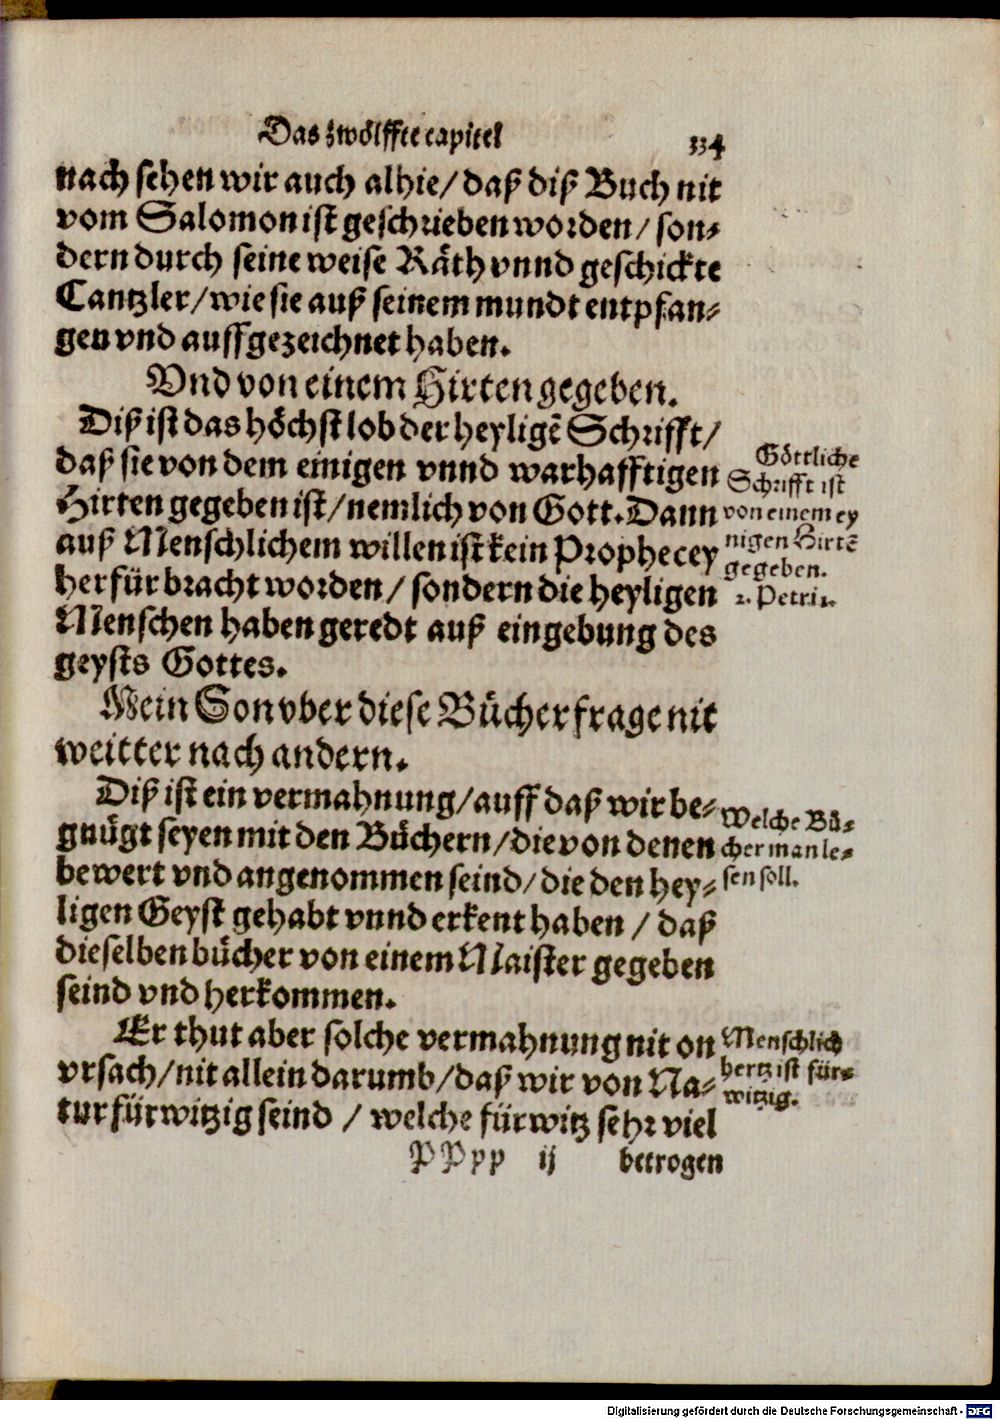 Das zwölffte capitel
334
nach sehen wir auch alhie/ daß diß Buch nit
vom Salomon ist geschrieben worden/ son-
dern durch seine weise Räth vnnd geschickte
Cantzler/ wie sie auß seinem mundt entpfan-
gen vnd auffgezeichnet haben.
Vnd von einem Hirten gegeben.
Diß ist das höchst lob der heyligē Schrifft/
daß sie von dem einigen vnnd warhafftigen
Hirten gegeben ist/ nemlich von Gott. Dann
auß Menschlichem willen ist kein Prophecey
herfür bracht worden/ sondern die heyligen
Menschen haben geredt auß eingebung des
geysts Gottes.
Göttliche
Schrifft ist
von einem ey
nigen Hirtē
gegeben.
2. Petri 1.
Mein Son vber diese Bücher frage nit
weitter nach andern.
Diß ist ein vermahnung/ auff daß wir be-
gnügt seyen mit den Büchern/ die von denen
bewert vnd angenommen seind/ die den hey-
ligen Geyst gehabt vnnd erkent haben / daß
dieselben bücher von einem Maister gegeben
seind vnd herkommen.
Welche Bü-
cher man le-
sen soll.
Er thut aber solche vermahnung nit on
vrsach/ nit allein darumb/ daß wir von Na-
tur fürwitzig seind / welche fürwitz sehr viel
Menschlich
hertz ist für-
witzig.
PPpp ij
betrogen
Digitalisierung gefördert durch die Deutsche Forschungsgemeinschaft - DFG